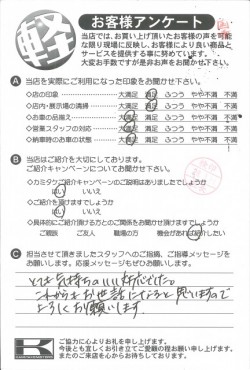 軽
お客様アンケート
当店では、お買い上げ頂いたお客様の声を可能
な限り現場に反映し、お客様により良い商品と
サービスを提供する事に努めています。
大変お手数ですが是非お声をお聞かせ下さい。
A 当店を実際にご利用になった印象をお聞かせ下さい。
◇店の印象 大満足 満足 ふつう やや不満 不満
◇店内・展示場の清掃 大満足 満足 ふつう やや不満 不満
◇お車の品揃え 大満足 満足 ふつう やや不満 不満
◇営業スタッフの対応 大満足 満足 ふつう やや不満 不満
◇納車時のお車の状態 大満足 満足 ふつう やや不満 不満
B 当店はご紹介を大切にしております。
ご紹介キャンペーンについてお聞かせ下さい。
◇カミタケご紹介キャンペーンのご説明はありましたでしょうか
はい いいえ
◇ご紹介を頂けますでしょうか
はい いいえ
◇具体的にご紹介頂ける方とのご関係をお聞かせ頂けますでしょうか
ご親戚 ご友人 職場の方 機会があれば紹介したい
C 担当させて頂きましたスタッフへのご指摘、ご指導メッセージを
お願いします。応援メッセージもぜひお願いします。
とても気持ちのいい対応でした。
これからもお世話になると思いますので
よろしくお願いします。
K
ご協力に心よりお礼を申し上げます。
今後とも宜しくお引き立てご愛顧の程お願い申し上げます。
またのご来店を心からお待ちしております。